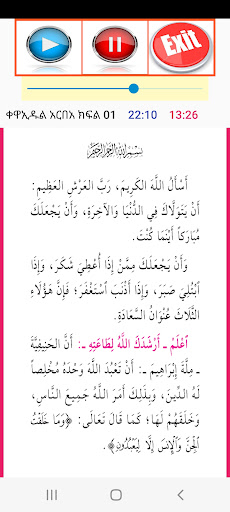 Exit
ቀዋኢዱል አርበአ ክፍል 01 22:10 13:26
بِسْمِ اللَّهِ الرَّحْمَنِ الرَّحِيمِ
أَسْأَلُ اللَّهَ الْكَرِيمَ، رَبَّ العَرْشِ العَظِيمِ:
أَنْ يَتَوَلَّاكَ فِي الدُّنْيَا وَالآخِرَةِ، وَأَنْ يَجْعَلَكَ
مُبَارَكاً أَيْنَمَا كُنْتَ.
وَأَنْ يَجْعَلَكَ مِمَّنْ إِذَا أُعْطِيَ شَكَرَ، وَإِذَا
ابْتُلِيَ صَبَرَ، وَإِذَا أَذْنَبَ اسْتَغْفَرَ؛ فَإِنَّ هَؤُلَاءِ
الثَّلَاثَ عُنْوَانُ السَّعَادَةِ.
اعْلَمْ ـ أَرْشَدَكَ اللَّهُ لِطَاعَتِهِ ـ: أَنَّ الحَنِيفِيَّةَ
ـ مِلَّةَ إِبْرَاهِيمَ ـ: أَنْ تَعْبُدَ اللَّهَ وَحْدَهُ مُخْلِصاً
لَهُ الدِّينَ، وَبِذَلِكَ أَمَرَ اللَّهُ جَمِيعَ النَّاسِ،
وَخَلَقَهُمْ لَهَا؛ كَمَا قَالَ تَعَالَى: ﴿وَمَا خَلَقْتُ
الْجِنَّ وَالْإِنسَ إِلَّا لِيَعْبُدُونِ﴾.